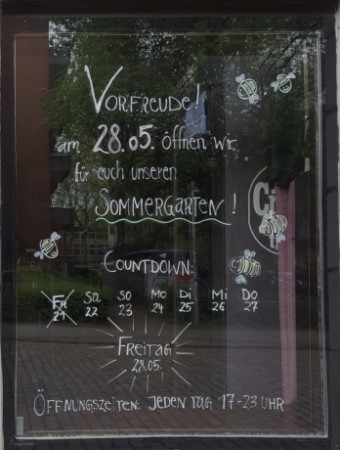 VORFREUDE!
am 28.05. öffnen wir
für euch unseren
SOMMERGARTEN!
COUNTDOWN:
Fr Sa So Mo Di Mi Do
21 22 23 24 25 26 27
FREITAG
28.05.
ÖFFNUNGSZEITEN: JEDEN TAG 17-23 UHR